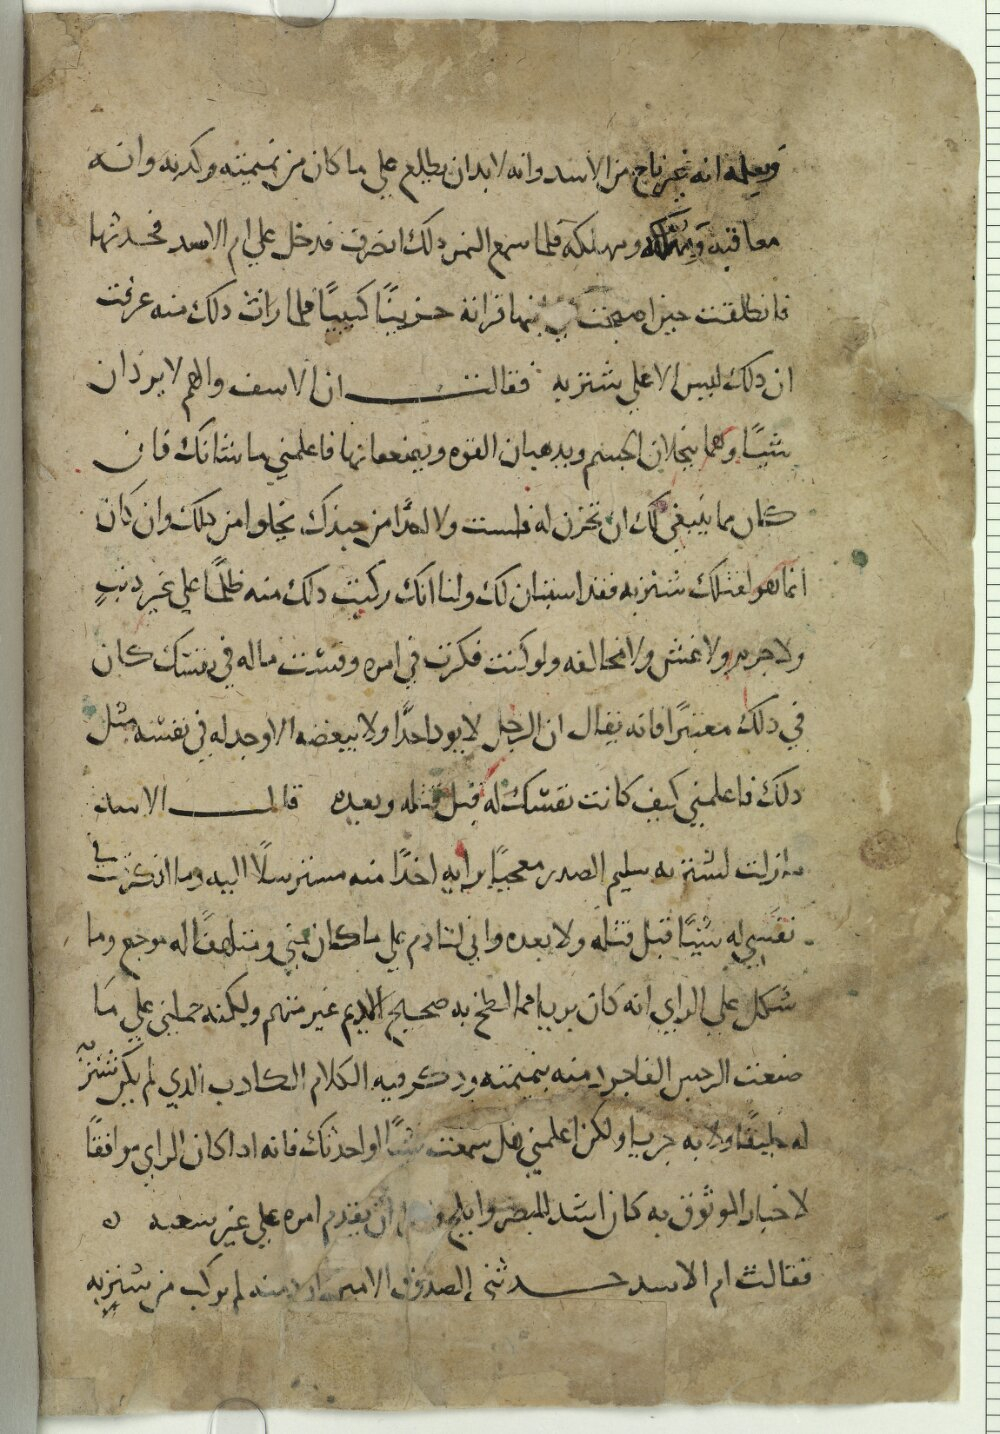 ويعلمه انه غير ناج من الاسد وانه لا بد ان يطلع علي ما كان من نميمته وكذبه وانه
معاقبه ومهلكه فلما سمع النمر ذلك انصرف فدخل علي ام الاسد فحدثها
فانطلقت حين اصبحت الي ابنها فراته حزينًا كئيبًا فلما رات ذلك منه عرفت
ان ذلك ليس الا علي شنزبه فقالت ان الاسف والهم لا يردان
شيئًا وهما ينحلان الجسم ويذهبان القوه ويضعفانها فاعلمني ما شانك فان
كان مما ينبغي لك ان تحزن له فلست ولا احدًا من جندك يخلوا من ذلك وان كان
انما هو لقتلك شنزبه فقد استبان لك ولنا انك ركبت ذلك منه ظلمًا علي غير ذنبٍ
ولا جرم ولا غش ولا مخالفه ولو كنت فكرت في امره وقست ماله في نفسك كان
في ذلك معتبرًا فانه يقال ان الرجل لا يود احدًا ولا يبغضه الا وجد له في نفسه مثل
ذلك فاعلمني كيف كانت نفسك له قبل قتله وبعده قال الاسد
ما زلت لشنزبه سليم الصدر معجبًا برايه اخذًا منه مسترسلًا اليه وما انكرت في
نفسي له شيئًا قبل قتله ولا بعده واني لنادم علي ما كان مني ومتلهفًا له موجع وما
شكل علي الراي انه كان بريا مما الطخ به صحيح الاديم غير متهم ولكنه حملني علي ما
صنعت الرجس الفاجر دمنه بنميمته وذكر فيه الكلام الكاذب الذي لم يكن شنزبه
له خليقًا ولا به حريا ولكن اعلميني هل سمعت شيئًا او احدثك فانه اذا كان الراي موافقًا
لاخبار الموثوق به كان اشد للبصر وابلج من ان يقدم امره علي غير سعه ه
فقالت ام الاسد حدثني الصدوق الامين ان دمنه لم يركب من شنزبه